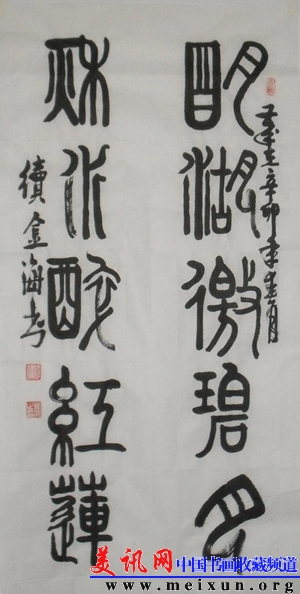 歲在辛卯年春月
明湖碧月
秋水醉紅蓮
續金海書
美讯网 中国书画收藏频道
www.meixun.org